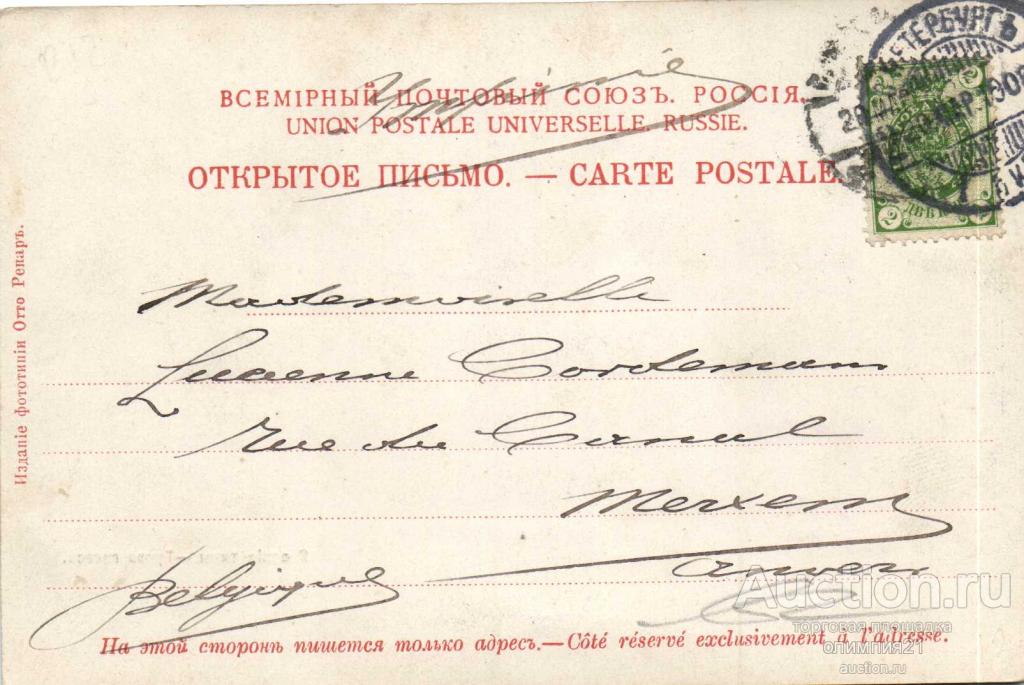 ВСЕМІРНЫЙ ПОЧТОВЫЙ СОЮЗЪ. РОССІЯ.
UNION POSTALE UNIVERSELLE. RUSSIE.
ОТКРЫТОЕ ПИСЬМО. — CARTE POSTALE.
2 2
ПЕТЕРБУРГЪ
Изданіе фототипіи Отто Ренаръ.
Mademoiselle
Lucienne Cordemans
Rue du Canal
Merxem
Anvers
Belgique
На этой сторонѣ пишется только адресъ.—Côté réservé exclusivement à l'adresse.
Auction.ru
торговая площадка
олимпия21
auction.ru